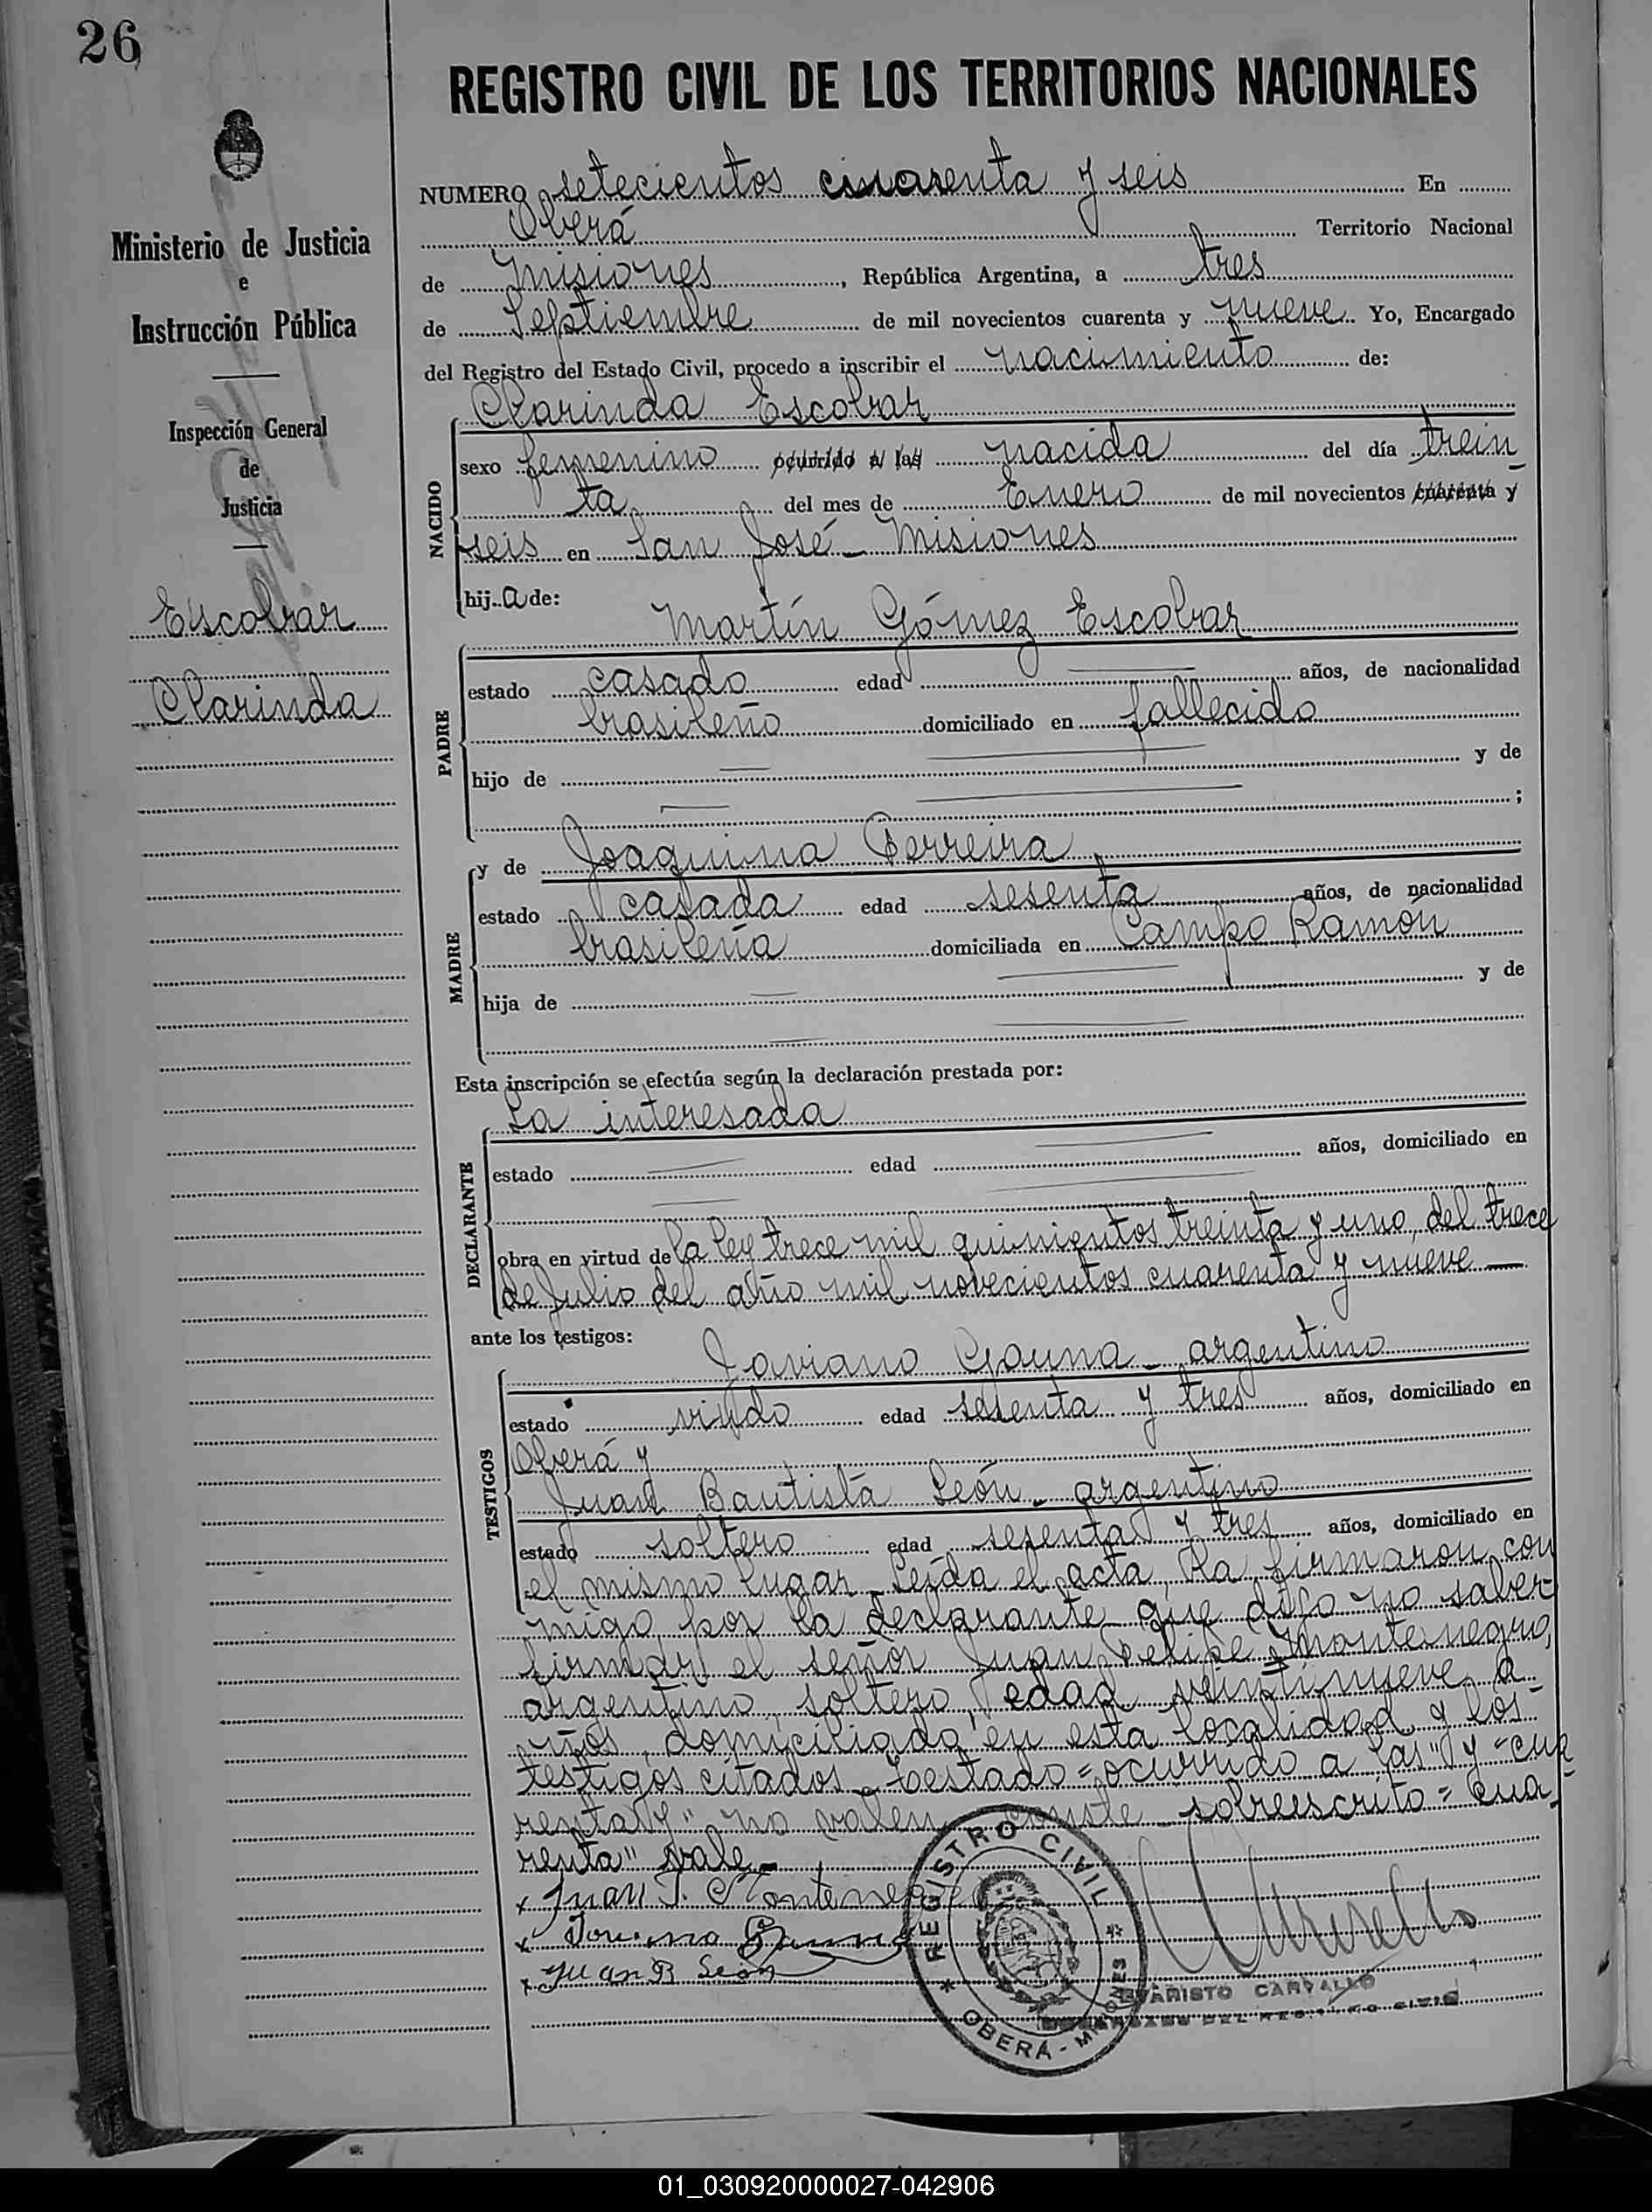 26
REGISTRO CIVIL DE LOS TERRITORIOS NACIONALES
NUMERO setecientos cuarenta y seis En
Oberá Territorio Nacional
de Misiones, República Argentina, a tres
de Septiembre de mil novecientos cuarenta y nueve Yo, Encargado
del Registro del Estado Civil, procedo a inscribir el nacimiento de:
Ministerio de Justicia
e
Instrucción Pública
Inspección General
de
Justicia
Escobar
Clarinda
NACIDO
Clarinda Escobar
sexo femenino ocurrido a las nacida del día trein
ta del mes de Enero de mil novecientos cuarenta y
seis en San José - Misiones
hij a de:
PADRE
Martín Gómez Escobar
estado casado edad años, de nacionalidad
brasileño domiciliado en fallecido
hijo de y de
;
MADRE
y de Joaquina Ferreira
estado casada edad sesenta años, de nacionalidad
brasileña domiciliada en Campo Ramón
hija de y de
Esta inscripción se efectúa según la declaración prestada por:
DECLARANTE
La interesada
estado edad años, domiciliado en
obra en virtud de la ley trece mil quinientos treinta y uno, del trece
de Julio del año mil novecientos cuarenta y nueve —
ante los testigos:
TESTIGOS
Joviano Gauna - argentino
estado viudo edad sesenta y tres años, domiciliado en
Oberá y
Juan Bautista León - argentino
estado soltero edad sesenta y tres años, domiciliado en
el mismo lugar - Leída el acta, la firmaron con
migo, por la declarante que dijo no saber
firmar, el señor Juan Felipe Montenegro,
argentino, soltero, edad veintinueve a-
ños, domiciliado en esta localidad y los
testigos citados - Testado = ocurrido a las" y "cua
renta y" no valen conste - sobreescrito = cua-
renta" vale -
x Juan F. Montenegro
x Joviano Gauna
x Juan B León
REGISTRO CIVIL
* OBERÁ - MISIONES *
EVARISTO CARVALLO
ENCARGADO DEL REGISTRO CIVIL
01_030920000027-042906